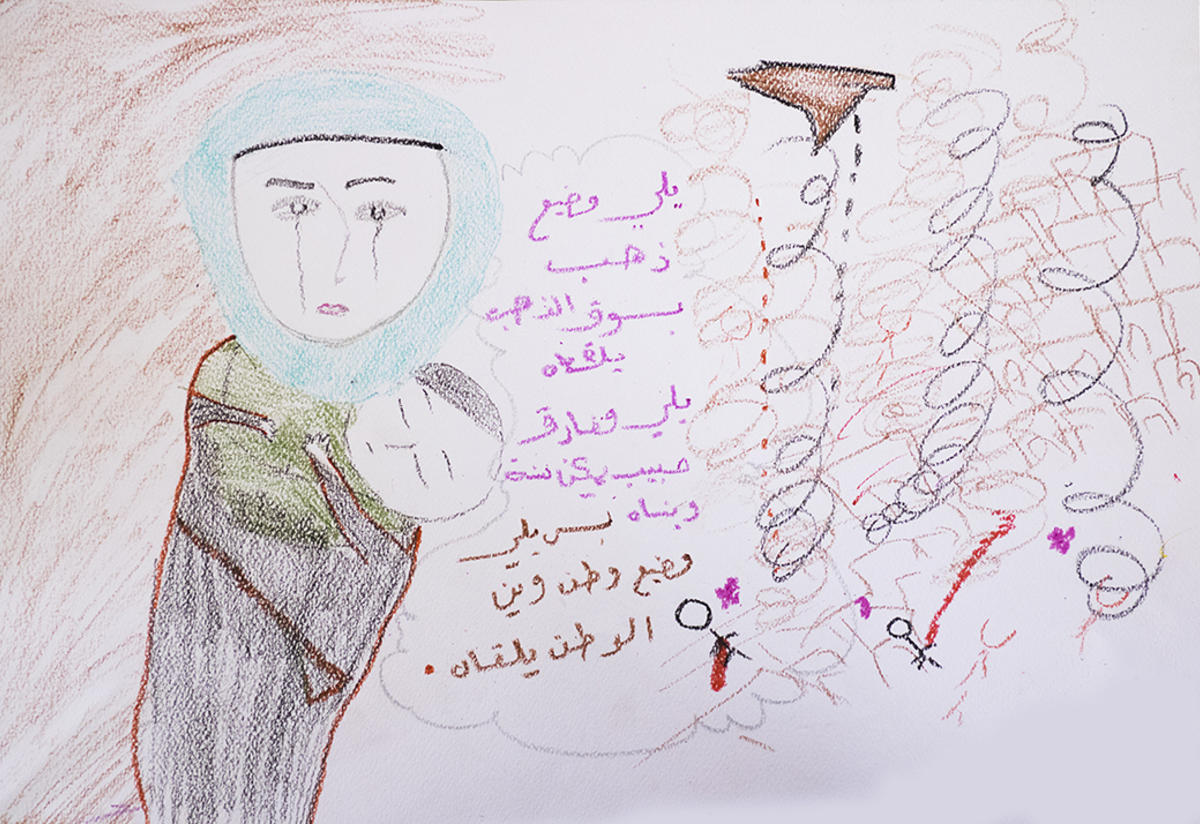 يلي مضيع
ذهب
بسوق الذهب
يلقاه
يلي مفارق
حبيب يمكن سنة
وينساه بس يلي
مضيع وطن وين
الوطن يلقاه.